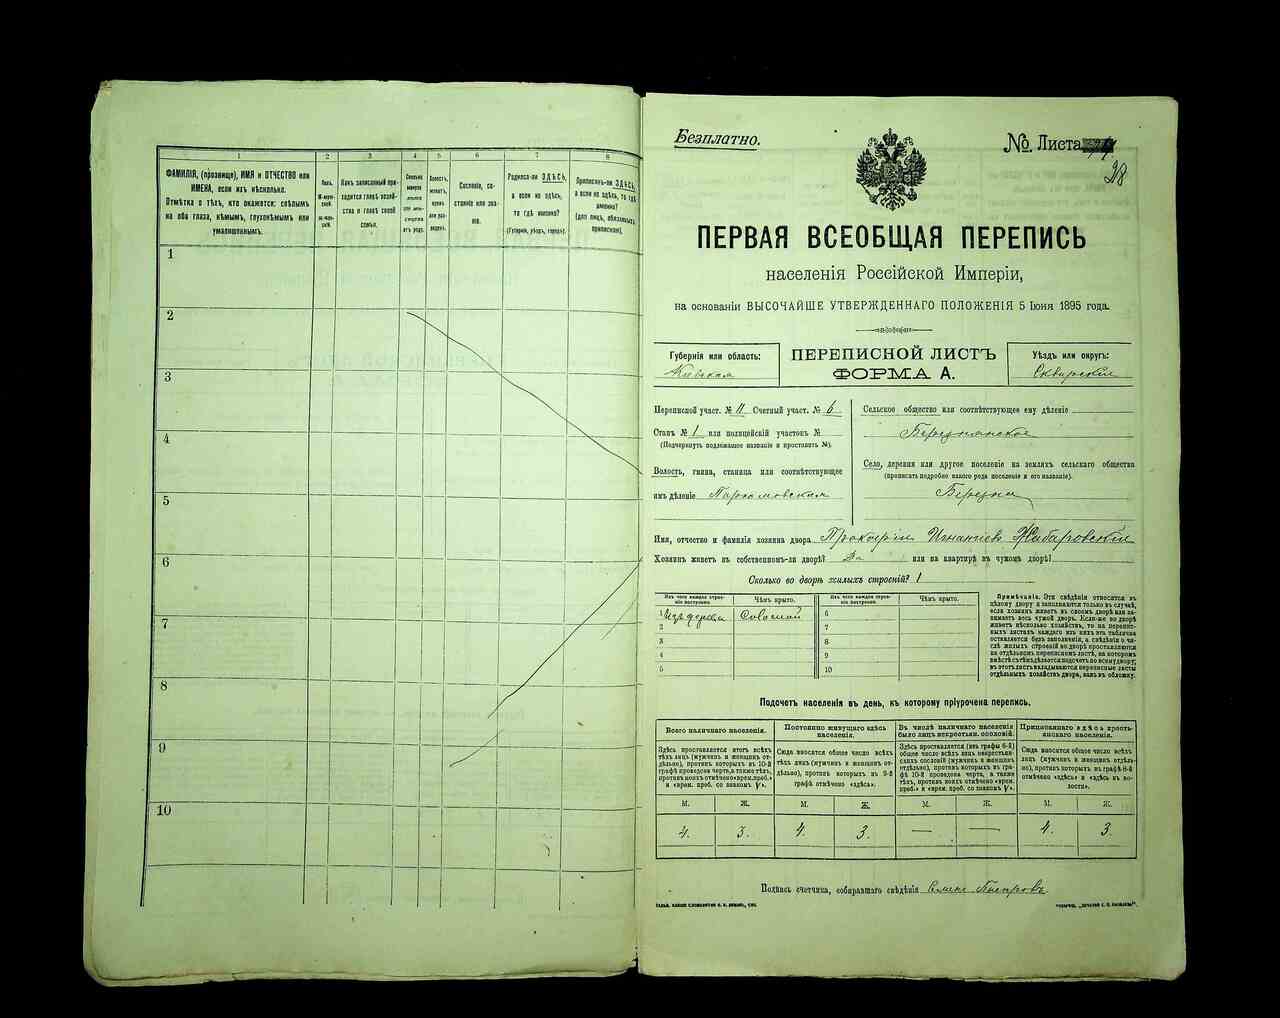 1 2 3 4 5 6 7 8
ФАМИЛІЯ, (прозвище), ИМЯ и ОТЧЕСТВО или
ИМЕНА, если ихъ нѣсколько.
Отмѣтка о тѣхъ, кто окажется: слѣпымъ
на оба глаза, нѣмымъ, глухонѣмымъ или
умалишеннымъ.
Полъ.
Какъ записанный при-
ходится главѣ хозяй-
ства и главѣ своей
семьи.
Сословіе, со-
стояніе или зва-
ніе.
Родился-ли ЗДѢСЬ,
а если не здѣсь,
то гдѣ именно?
(Губернія, уѣздъ, городъ).
Приписанъ-ли ЗДѢСЬ,
а если не здѣсь, то гдѣ
именно?
(для лицъ, обязанныхъ
припиской).
1
2
3
4
5
6
7
8
9
10
Безплатно.
№ Листа
28
ПЕРВАЯ ВСЕОБЩАЯ ПЕРЕПИСЬ
населенія Россійской Имперіи,
на основаніи ВЫСОЧАЙШЕ УТВЕРЖДЕННАГО ПОЛОЖЕНІЯ 5 Іюня 1895 года.
Губернія или область:
Кіевская
ПЕРЕПИСНОЙ ЛИСТЪ
ФОРМА А.
Уѣздъ или округъ:
Сквирскій
Переписной участ. № 11 Счетный участ. № 6
Станъ № 1 или полицейскій участокъ №
(Подчеркнуть подлежащее названіе и проставить №).
Волость, гмина, станица или соотвѣтствующее
имъ дѣленіе Пархомовская
Сельское общество или соотвѣтствующее ему дѣленіе
Березнянское
Село, деревня или другое поселеніе на земляхъ сельскаго общества
(прописать подробно какого рода поселеніе и его названіе).
Березна
Имя, отчество и фамилія хозяина двора Игнатіевъ
Хозяинъ живетъ въ собственномъ-ли дворѣ? Да или на квартирѣ въ чужомъ дворѣ?
Сколько во дворѣ жилыхъ строеній? 1
Изъ чего каждое строе-
ніе построено.
Чѣмъ крыто.
Изъ чего каждое строе-
ніе построено.
Чѣмъ крыто.
1 Изъ дерева Соломой
2
3
4
5
6
7
8
9
10
Примѣчаніе. Эти свѣдѣнія относятся къ
цѣлому двору и заполняются только въ случаѣ,
если хозяинъ живетъ въ своемъ дворѣ или за-
нимаетъ весь чужой дворъ. Если-же во дворѣ
живетъ нѣсколько хозяйствъ, то на перепис-
ныхъ листахъ каждаго изъ нихъ эта табличка
оставляется безъ заполненія, а свѣдѣнія о чи-
слѣ жилыхъ строеній во дворѣ проставляются
на отдѣльномъ переписномъ листѣ, на которомъ
вмѣстѣ съ тѣмъ дѣлается подсчетъ по всему двору;
въ этотъ листъ вкладываются переписные листы
отдѣльныхъ хозяйствъ двора, какъ въ обложку.
Подсчетъ населенія въ день, къ которому пріурочена перепись.
Всего наличнаго населенія.
Здѣсь проставляется итогъ всѣхъ
тѣхъ лицъ (мужчинъ и женщинъ от-
дѣльно), противъ которыхъ въ 10-й
графѣ проведена черта, а также тѣхъ,
противъ коихъ отмѣчено «врем. проб.»
и «врем. проб. со знакомъ V».
Постоянно живущаго здѣсь
населенія.
Сюда вносятся общее число всѣхъ
тѣхъ лицъ (мужчинъ и женщинъ от-
дѣльно), противъ которыхъ въ 9-й
графѣ отмѣчено «здѣсь».
Въ числѣ наличнаго населенія
было лицъ некрестьян. сословій.
Здѣсь проставляется (изъ графы 6-й)
общее число всѣхъ лицъ некрестьян-
скихъ сословій (мужчинъ и женщинъ
отдѣльно), противъ которыхъ въ гра-
фѣ 10-й проведена черта, а также
тѣхъ, противъ коихъ отмѣчено «врем.
проб.» и «врем. проб. со знакомъ V».
Приписаннаго здѣсь кресть-
янскаго населенія.
Сюда вносятся общее число всѣхъ
лицъ (мужчинъ и женщинъ отдѣль-
но), противъ которыхъ въ графѣ 8-й
отмѣчено «здѣсь» и «здѣсь въ во-
лости».
М. Ж. М. Ж. М. Ж. М. Ж.
4. 3. 4. 3. — — 4. 3.
Подпись счетчика, собиравшаго свѣдѣнія